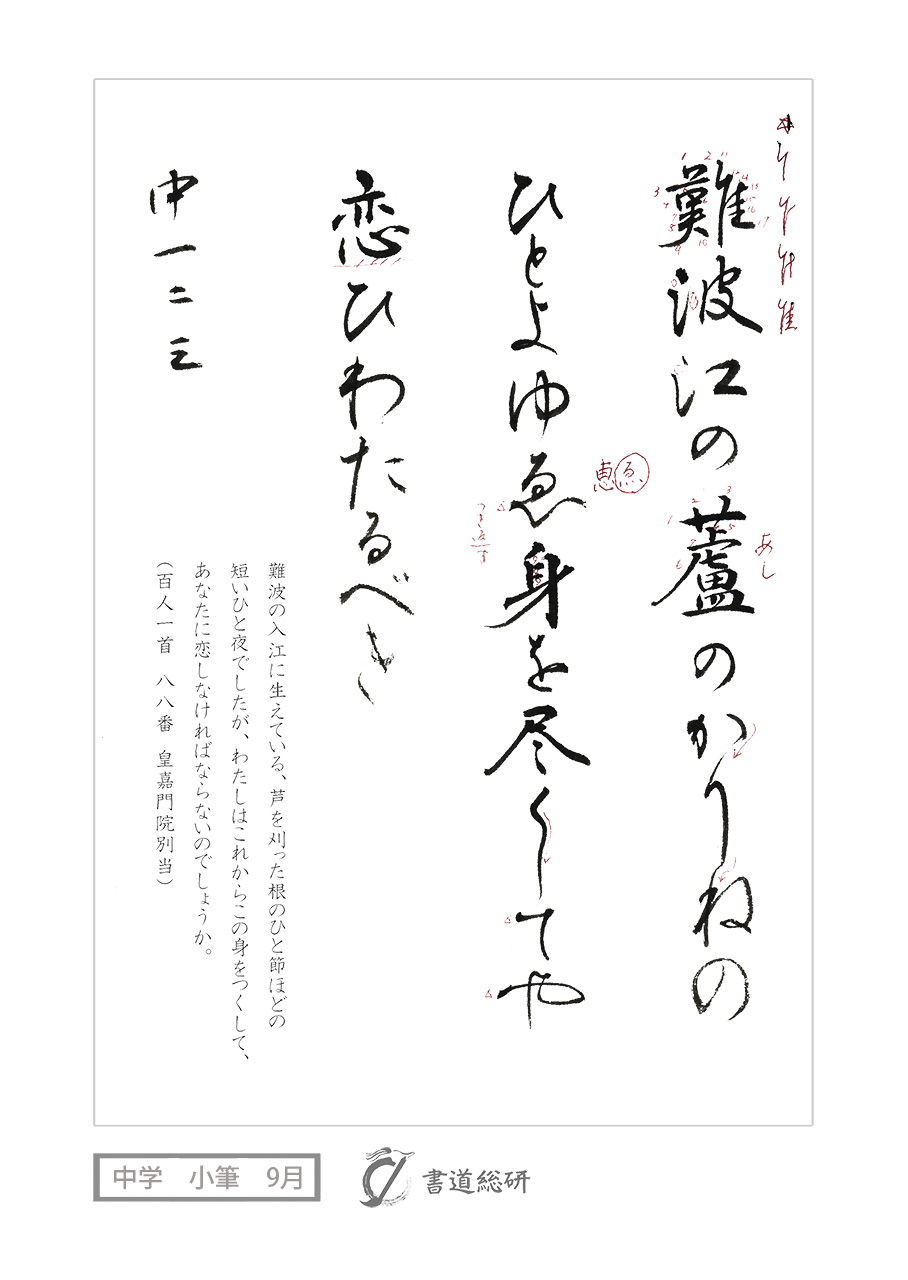 難波江の蘆のかりねの
あし
ひとよゆゑ身を尽くしてや
恵ゑ
つき返す
恋ひわたるべき
中一二三
難波の入江に生えている、芦を刈った根のひと節ほどの
短いひと夜でしたが、わたしはこれからこの身をつくして、
あなたに恋しなければならないのでしょうか。
(百人一首 八八番 皇嘉門院別当)
中学 小筆 9月
書道総研